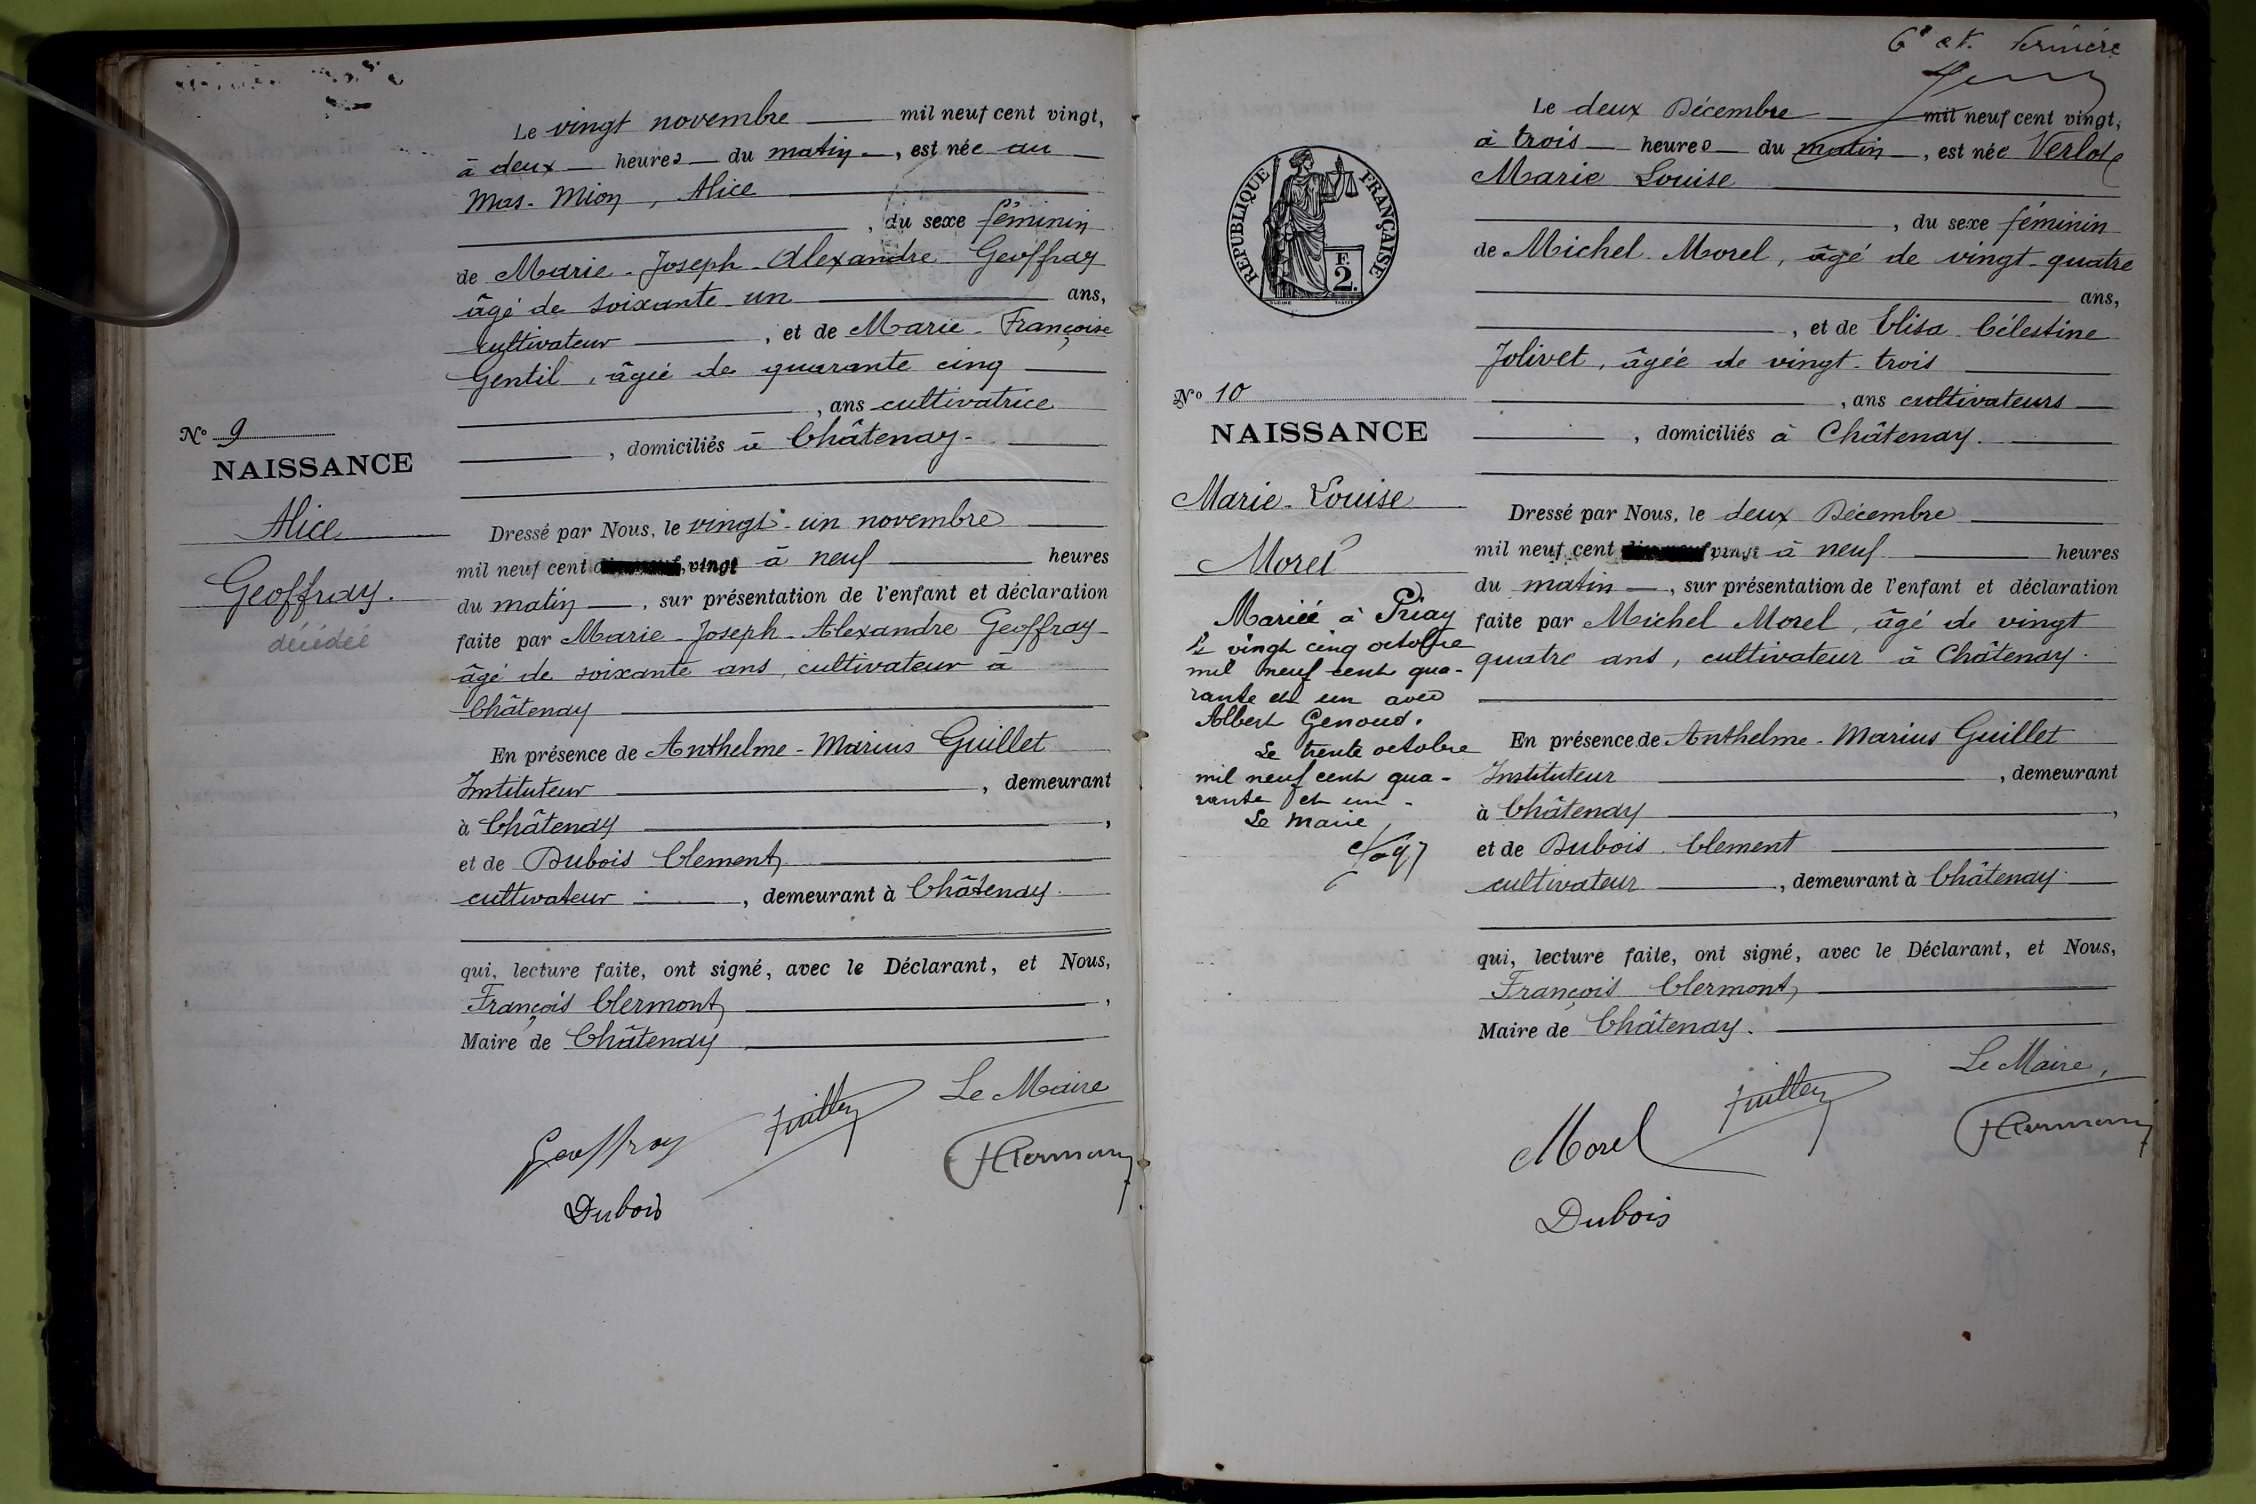 Le vingt novembre mil neuf cent vingt,
à deux heures du matin, est née au
Mas-Mion, Alice
, du sexe féminin
de Marie-Joseph-Alexandre Geoffray
âgé de soixante un ans,
cultivateur, et de Marie-Françoise
Gentil, âgée de quarante cinq
, ans cultivatrice
, domiciliés à Châtenay.
N° 9
NAISSANCE
Alice
Geoffray.
décédée
Dressé par Nous, le vingt-un novembre
mil neuf cent vingt à neuf heures
du matin, sur présentation de l'enfant et déclaration
faite par Marie-Joseph-Alexandre Geoffray
âgé de soixante ans, cultivateur à
Châtenay
En présence de Anthelme-Marius Guillet
Instituteur, demeurant
à Châtenay,
et de Dubois Clement
cultivateur, demeurant à Châtenay
qui, lecture faite, ont signé, avec le Déclarant, et Nous,
François Clermont,
Maire de Châtenay
Le Maire
Geoffray
Dubois
6e et dernière
RÉPUBLIQUE FRANÇAISE
2 F.
Le deux Décembre mil neuf cent vingt,
à trois heures du matin, est née
Marie Louise
, du sexe féminin
de Michel Morel, âgé de vingt-quatre
ans,
, et de Elisa Célestine
Jolivet, âgée de vingt-trois
, ans cultivateurs
, domiciliés à Châtenay.
N° 10
NAISSANCE
Marie-Louise
Morel
Mariée à Priay
le vingt cinq octobre
mil neuf cent qua-
rante et un avec
Albert Genoud.
Le trente octobre
mil neuf cent qua-
rante et un.
Le Maire
Dressé par Nous, le deux Décembre
mil neuf cent vingt à neuf heures
du matin, sur présentation de l'enfant et déclaration
faite par Michel Morel, âgé de vingt
quatre ans, cultivateur à Châtenay.
En présence de Anthelme-Marius Guillet
Instituteur, demeurant
à Châtenay,
et de Dubois Clement
cultivateur, demeurant à Châtenay
qui, lecture faite, ont signé, avec le Déclarant, et Nous,
François Clermont
Maire de Châtenay.
Le Maire,
Morel
Dubois